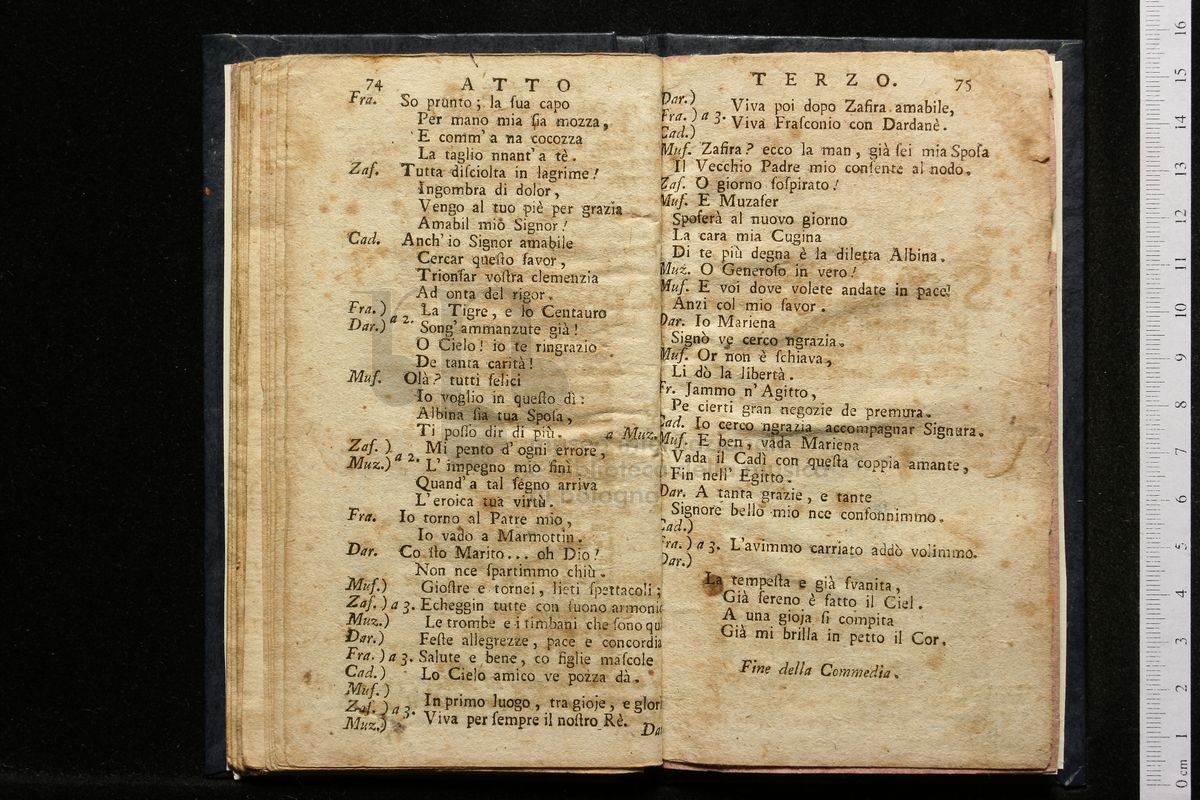 74 ATTO
Fra. So prunto; la ſua capo
Per mano mia ſia mozza,
E comm' a na cocozza
La taglio nnant' a tè.
Zaf. Tutta diſciolta in lagrime!
Ingombra di dolor,
Vengo al tuo piè per grazia
Amabil mio Signor!
Cad. Anch' io Signor amabile
Cercar queſto favor,
Trionfar voſtra clemenzia
Ad onta del rigor.
Fra.) La Tigre, e lo Centauro
Dar.) a 2. Song' ammanzute già!
O Cielo! io te ringrazio
De tanta carità!
Muf. Olà? tutti felici
Io voglio in queſto dì:
Albina ſia tua Spoſa,
Ti poſſo dir di più. a Muz.
Zaf.) Mi pento d' ogni errore,
Muz.) a 2. L' impegno mio finì
Quand' a tal ſegno arriva
L' eroica tua virtù.
Fra. Io torno al Patre mio,
Io vado a Marmottin.
Dar. Co ſto Marito... oh Dio!
Non nce ſpartimmo chiù.
Muf.) Gioſtre e tornei, lieti ſpettacoli;
Zaf.) a 3. Echeggin tutte con ſuono armonic
Muz.) Le trombe e i timbani che ſono qu
Dar.) Feſte allegrezze, pace e concordia
Fra.) a 3. Salute e bene, co figlie maſcole
Cad.) Lo Cielo amico ve pozza dà.
Muf.)
Zaf.) a 3. In primo luogo, tra gioje, e glori
Muz.) Viva per ſempre il noſtro Rè.
Da
TERZO. 75
Dar.)
Fra.) a 3. Viva poi dopo Zafira amabile,
Cad.) Viva Fraſconio con Dardanè.
Muf. Zafira? ecco la man, già ſei mia Spoſa
Il Vecchio Padre mio conſente al nodo.
Zaf. O giorno ſoſpirato!
Muf. E Muzafer
Spoſerà al nuovo giorno
La cara mia Cugina
Di te più degna è la diletta Albina.
Muz. O Generoſo in vero!
Muf. E voi dove volete andate in pace!
Anzi col mio favor.
Dar. Io Mariena
Signò ve cerco ngrazia.
Muf. Or non è ſchiava,
Li dò la libertà.
Fr. Jammo n' Agitto,
Pe cierti gran negozie de premura.
Cad. Io cerco ngrazia accompagnar Signura.
Muf. E ben, vada Mariena
Vada il Cadì con queſta coppia amante,
Fin nell' Egitto.
Dar. A tanta grazie, e tante
Signore bello mio nce conſonnimmo.
Cad.)
Fra.) a 3. L'avimmo carriato addò volimmo.
Dar.)
La tempeſta e già ſvanita,
Già ſereno è fatto il Ciel.
A una gioja ſi compita
Già mi brilla in petto il Cor.
Fine della Commedia.